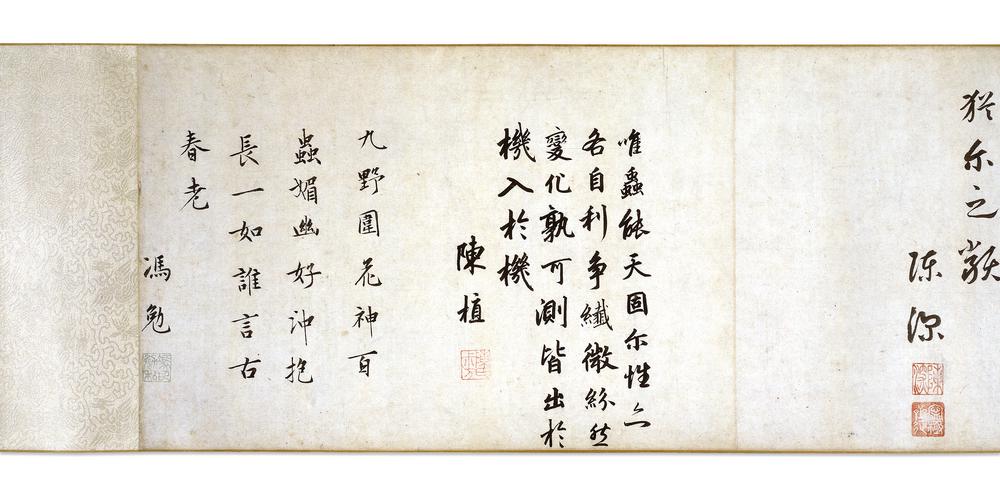 猶尔之歎
陳深
唯蟲能天固尔性亦
各自利爭纖微紛然
變化孰可測皆出於
機入於機
陳植
九野圍花神百
蟲媚幽好沖抱
長一如誰言古
春老
馮勉